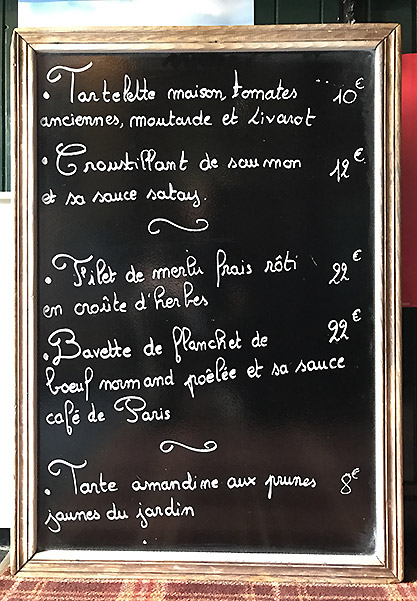 • Tartelette maison, tomates 10€
anciennes, moutarde et Livarot
• Croustillant de saumon 12€
et sa sauce satay.
• Filet de merlu frais rôti 22€
en croûte d'herbes
• Bavette de flanchet de 22€
boeuf normand poêlée et sa sauce
café de Paris
• Tarte amandine aux prunes 8€
jaunes du jardin